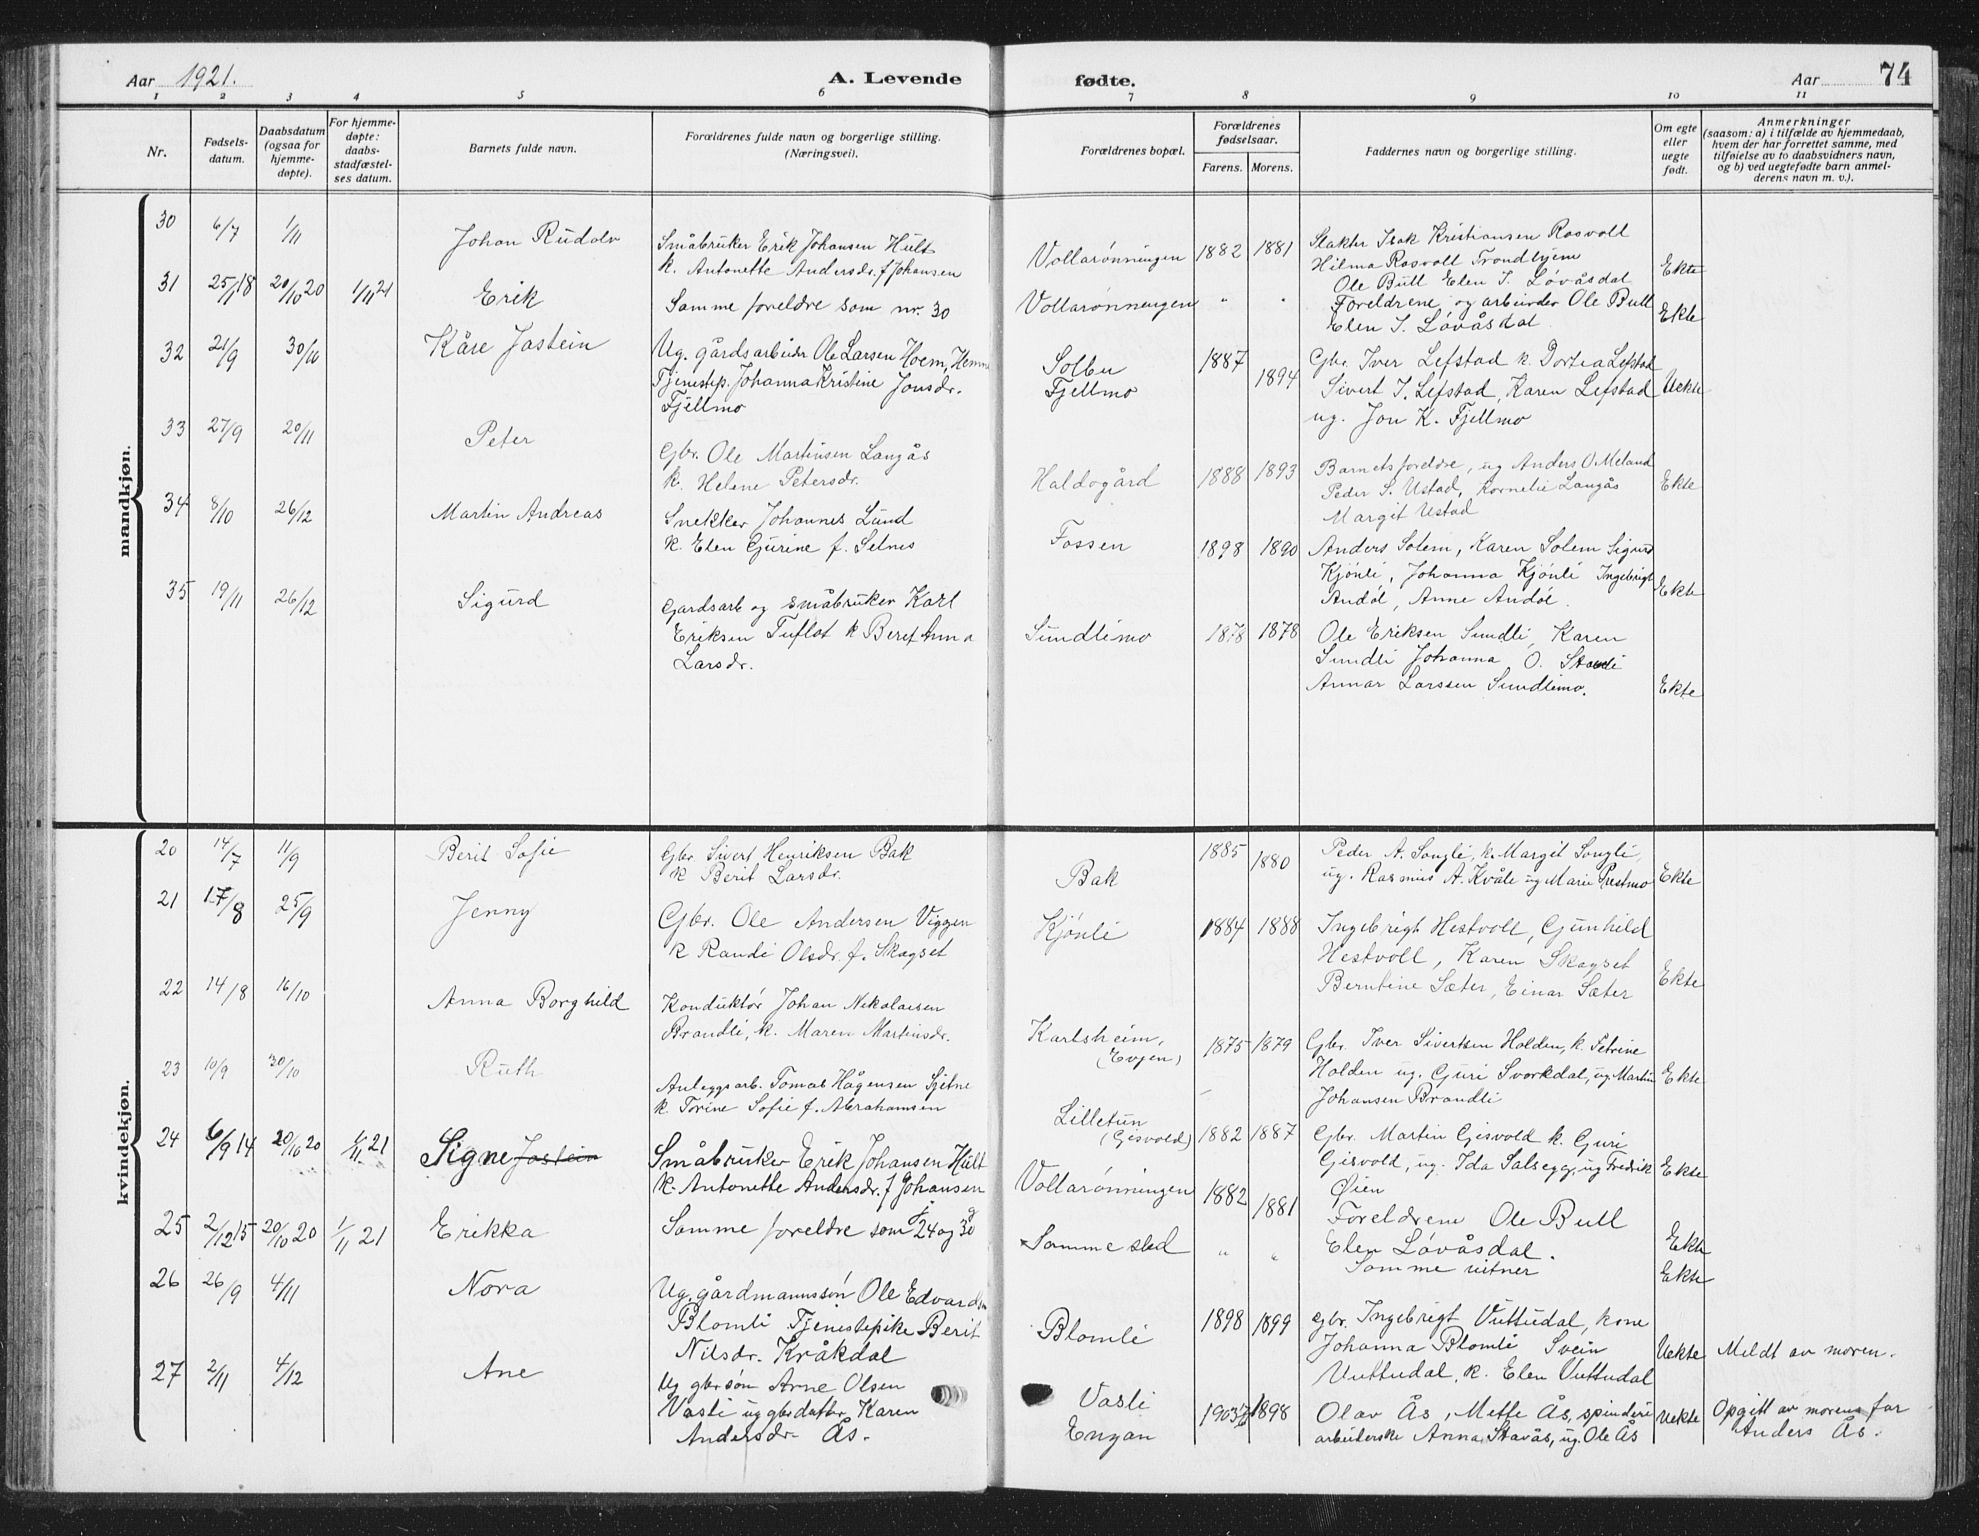 Aar 1921. A. Levende fødte. Aar 74
1 2 3 4 5 6 7 8 9 10 11
Nr.
Fødsels-
datum.
Daabsdatum
(ogsaa for
hjemme-
døpte).
For hjemme-
døpte:
daabs-
stadfæstel-
ses datum.
Barnets fulde navn.
Forældrenes fulde navn og borgerlige stilling.
(Næringsvei).
Forældrenes bopæl.
Forældrenes
fødselsaar.
Farens. Morens.
Faddernes navn og borgerlige stilling.
Om egte
eller
uegte
født.
Anmerkninger
(saasom: a) i tilfælde av hjemmedaab,
hvem der har forrettet samme, med
tilføielse av to daabsvidners navn,
og b) ved uegtefødte barn anmel-
derens navn m. v.).
mandkjøn.
30 6/7 1/11 Johan Rudolv
Småbruker Erik Johansen Hult
k. Antonette Andersdr. f Johansen
Vollarønningen 1882 1881
Slakter Isak Kristiansen Rosvoll
Hilma Rosvoll Trondhjem
Ole Bull Elen I. Løvåsdal
Ekte
31 25/1 18 20/10 20 1/11 21 Erik
Samme foreldre som nr. 30
Vollarønningen " "
Foreldrene og arbeider Ole Bull
Elen I. Løvåsdal
Ekte
32 21/9 30/10 Kåre Jostein
Ug. gårdsarbeidr Ole Larsen Hoem, Hemne
Tjenestep. Johanna Kristine Jonsdr.
Fjellmo
Solbu
Fjellmo
1887 1894
Gbr. Iver Lefstad k. Dortea Lefstad
Sivert I. Lefstad, Karen Lefstad
ug. Jon K. Fjellmo
Uekte
33 27/9 20/11 Peter
Gbr. Ole Martinsen Langås
k. Helene Petersdr.
Haldogård 1888 1893
Barnets foreldre, ug Anders O. Meland
Peder S. Ustad, Kornelie Langås
Margit Ustad
Ekte
34 8/10 26/12 Martin Andreas
Snekker Johannes Lund
k. Elen Gjurine f. Selnes
Fossen 1898 1890
Anders Solem, Karen Solem Sigurd
Kjønli, Johanna Kjønli Ingebrigt
Andøl, Anne Andøl.
Ekte
35 19/11 26/12 Sigurd
Gardsarb og småbruker Karl
Eriksen Tuflot k Beret Anna
Larsdr.
Sundlimo 1878 1878
Ole Eriksen Sundli, Karen
Sundli Johanna O.
Annar Larssen Sundlimo.
Ekte
kvindekjøn.
20 14/7 11/9 Berit Sofie
Gbr. Sivert Henriksen Bak
k Berit Larsdr.
Bak 1885 1880
Peder A. Songli, k. Margit Songli,
ug. Rasmus A. Kvåle ug Marie Prestmo
Ekte
21 17/8 25/9 Jenny
Gbr. Ole Andersen Viggen
k Randi Olsdr. f. Skagset
Kjønli 1884 1888
Ingebrigt Hestvoll, Gunhild
Hestvoll, Karen Skagset
Berntine Sæter, Einar Sæter
Ekte
22 14/8 16/10 Anna Borghild
Konduktør Johan Nikolaisen
Brandli, k. Maren Martinsdr.
Karlsheim,
(Evjen)
1875 1879
Gbr. Iver Sivertsen Holden, k. Petrine
Holden ug. Guri Svorkdal, ug. Martin
Johansen Brandli
Ekte
23 10/9 30/10 Ruth
Anleggsarb. Tomas Hågensen Sjetne
k. Torine Sofie f. Abrahamsen
Lilletun
(Gisvold)
1882 1887
Gbr. Martin Gisvold k. Guri
Gisvold, ug. Ida Salsegg, ug Fredrik
Øien
Ekte
24 6/9 14 20/10 20 1/11 21 Signe Jostein
Småbruker Erik Johansen Hult
k. Antonette Andersdr. f Johansen
Vollarønningen 1882 1881
Foreldrene Ole Bull
Elen Løvåsdal.
Ekte
25 2/12 15 20/10 20 1/11 21 Erikka
Samme foreldre som 24 og 30
Samme sted " "
Samme vitner
Ekte
26 26/9 4/11 Nora
Ug. gårdmannssøn Ole Edvardsen
Blomli Tjenestepike Berit
Nilsdr. Kråkdal
Blomli 1898 1899
gbr. Ingebrigt Vuttudal, kone
Johanna Blomli Svein
Vuttudal, k. Elen Vuttudal
Uekte
Meldt av moren.
27 2/11 4/12 Ane
Ug gbrsøn Arne Olsen
Vasli ug gbrdatter Karen
Andersdr. Ås.
Vasli
Engan
1903 1898
Olav Ås, Mette Ås, spinderi
arbeiderske Anna Stavås, ug. Ole Ås
Uekte
Opgitt av morens far
Anders Ås.